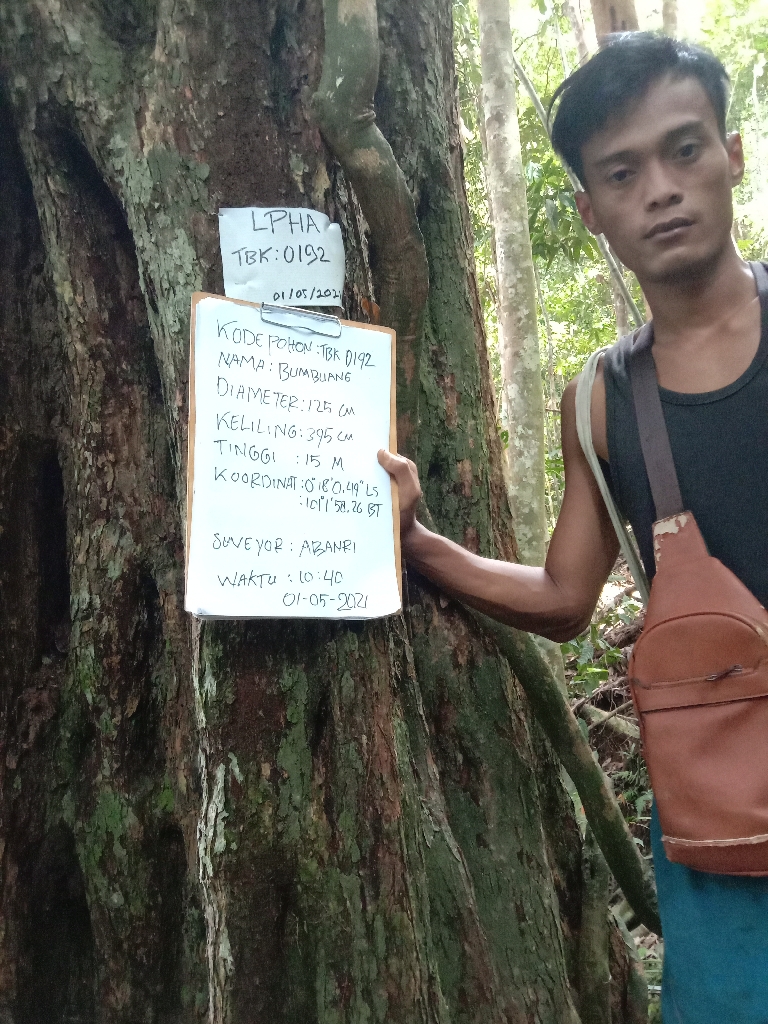 LPHA
TBK:0192
01/05/2021
KODE POHON:TBK 0192
NAMA: BUMBUANG
DIAMETER:125 CM
KELILING:395 CM
TINGGI : 15 M
KOORDINAT:0°18'0,49"LS
:101°1'58,26 BT
SUVEYOR : ABANRI
WAKTU : 10:40
01-05-2021